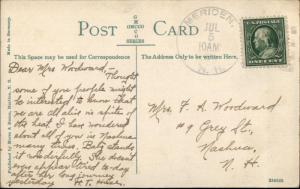 POST CARD
Made in Germany.
This Space may be used for Correspondence
The Address Only to be written Here.
MERIDEN,
JUL
5
10AM
N.H.
ONE CENT
Dear Mrs Woodward.
Thought
some of you people might
be interested to know that
we are all alive in spite of
the heat. I have wondered
about all of you in Nashua
many times. Betz stands
it wonderfully. She
was appear tired to day
after her long journey of
yesterday. H. T.
Mrs. F. A. Woodward
#9 Grey St.,
Nashua,
N. H.